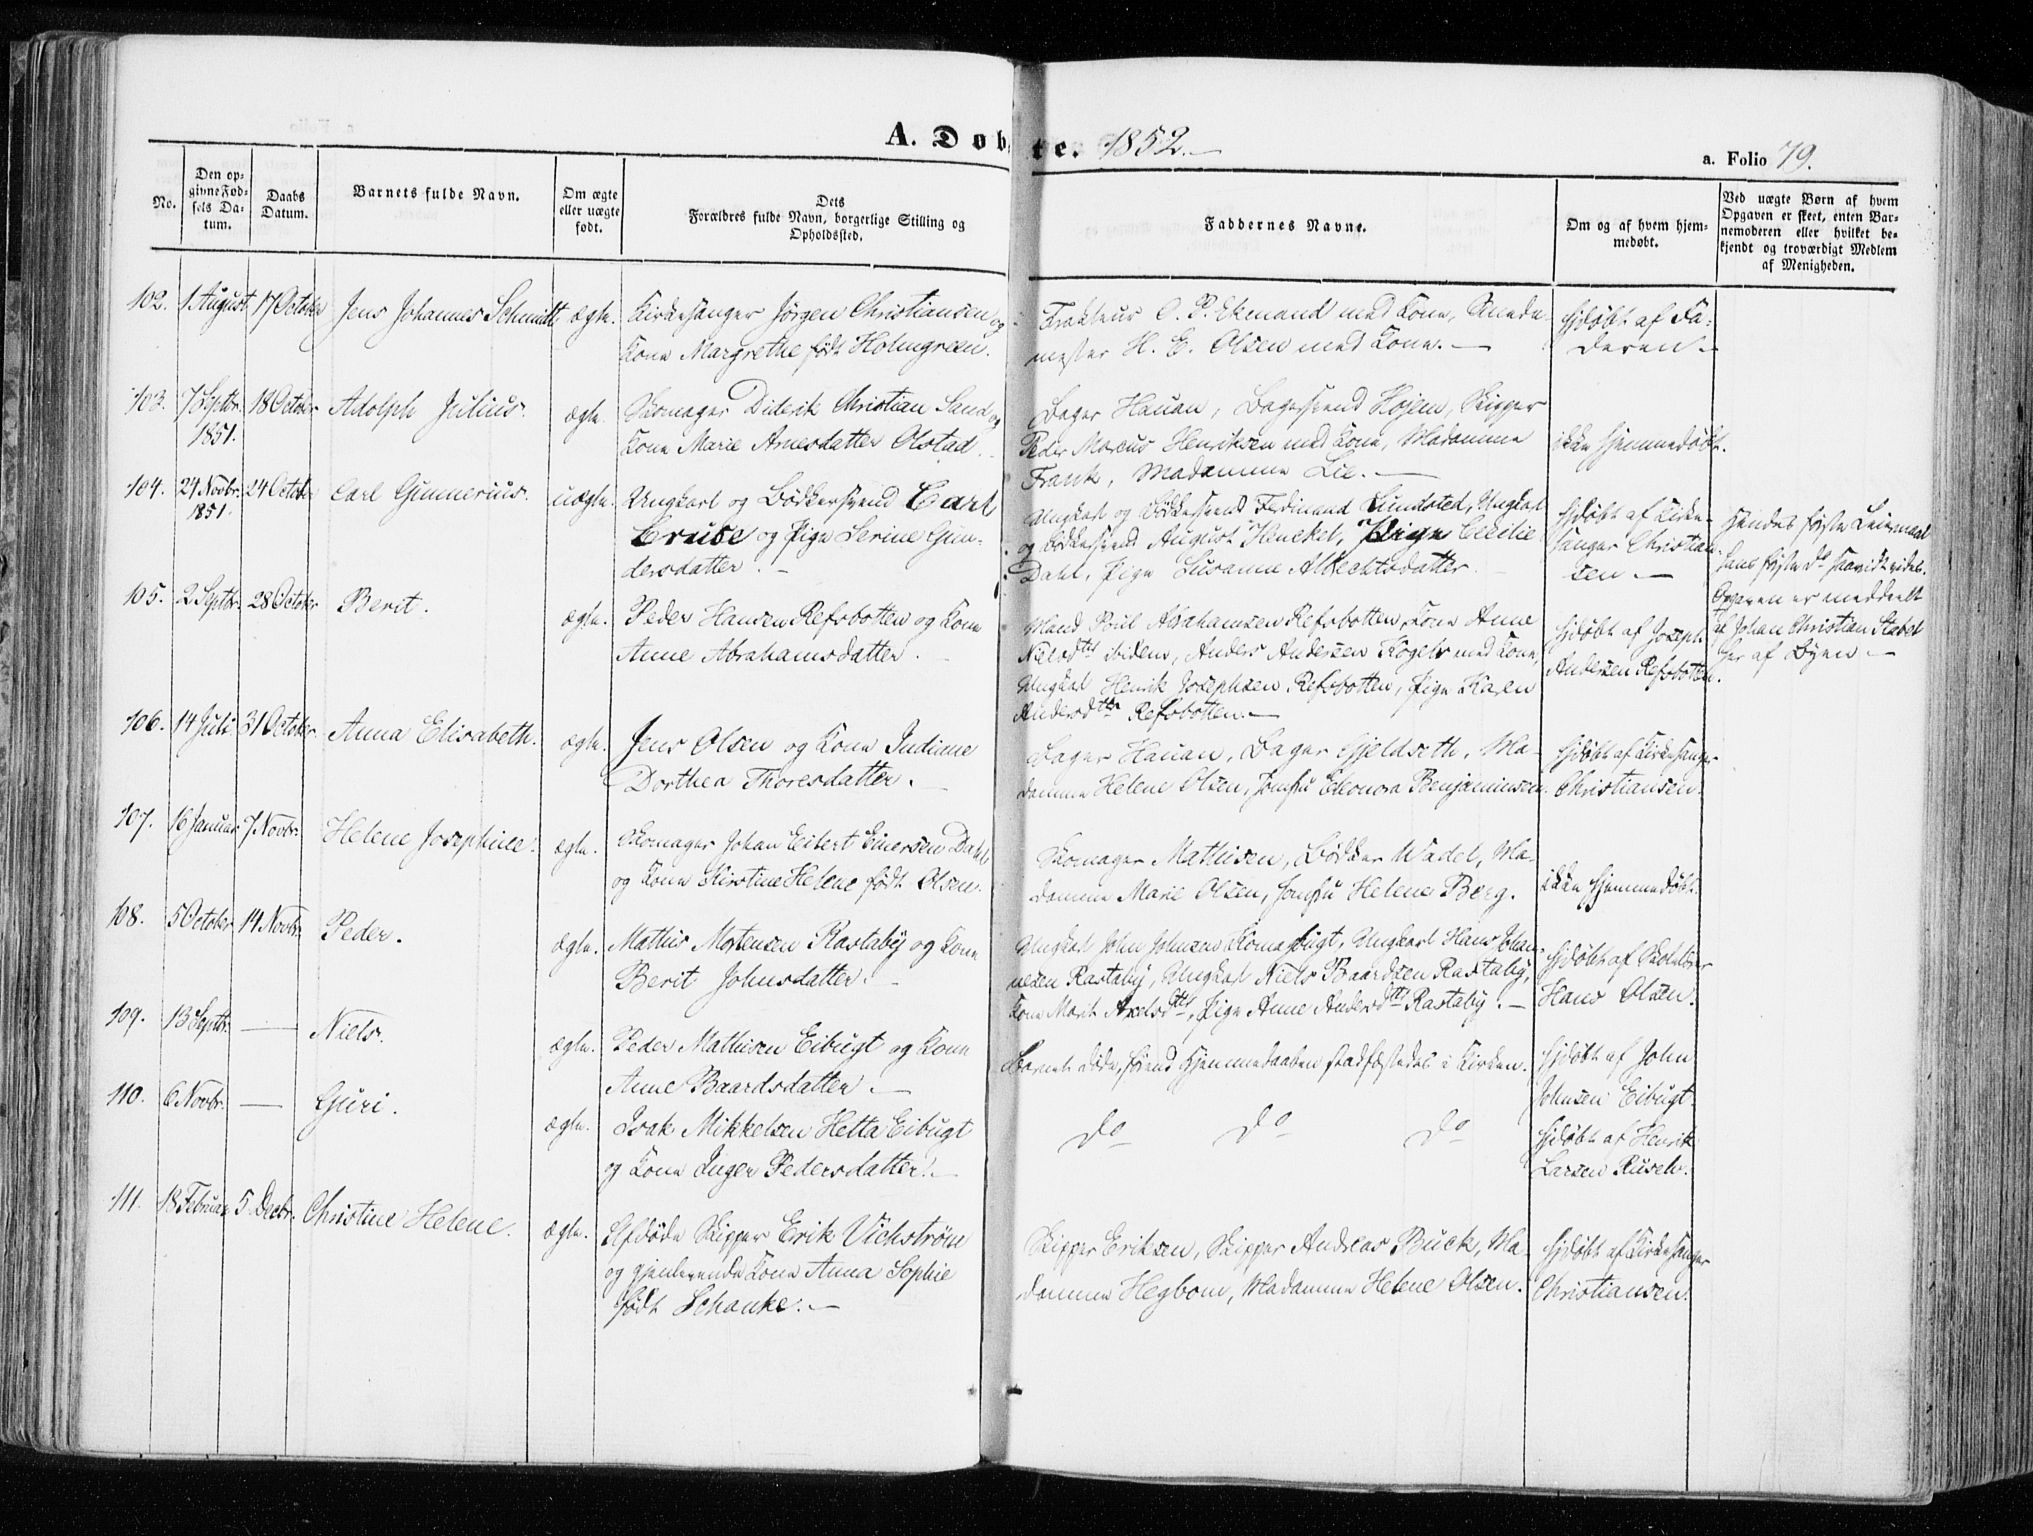 A. Døbte. 1852.
a. Folio 79.
No.
Den op-
givne Fød-
sels Da-
tum.
Daabs
Datum.
Barnets fulde Navn.
Om ægte
eller uægte
født.
Dets
Forældres fulde Navn, borgerlige Stilling og
Opholdssted.
Faddernes Navne.
Om og af hvem hjem-
medøbt.
Ved uægte Børn af hvem
Opgaven er skeet, enten Bar-
nemoderen eller hvilket be-
kjendt og troværdigt Medlem
af Menigheden.
102. 1 August 17 October Jens Johannes Schmidt ægte. Kirkesanger Jørgen Christiansen og
Kone Margrethe født Holmgreen.
O. P. Ekmand med Kone, Snedker-
mester H. E. Olsen med Kone. —
hjdøbt af Fa-
deren —
103. 7 Septbr. 1851. 18 October Adolph Julius. ægte. Skomager Diderik Christian Sand og
Kone Marie Arnesdatter Olstad.
Bager Hauan, Bagersvend Hojem, Skipper
Peder Marcus Henriksen med Kone, Madamme
Frank, Madamme Lie. —
ikke hjemmedøbt.
104. 24 Novbr. 1851. 24 October Carl Gunnerius. uægte. Ungkarl og Bødkersvend Carl
Cruse og Pige Serine Gun-
dersdatter. —
Ungkarl og Bødkersvend Ferdinand Lundsted, Ungkarl
og Bødkersvend August Henckel, Pige Cecilie
Dahl, Pige Susanne Albrechtsdatter.
hjdøbt af Kirke-
sanger Christian-
sen —
Hendes første Leiermaal
hans første do saavidt vides.
Opgaven er meddeelt
af Johan Christian Stabel
her af Byen —
105. 2 Septbr. 28 October Berit. ægte. Peder Hansen Refsbotten og Kone
Anne Abrahamsdatter. —
Mand Poul Abrahamsen Refsbotten, Kone Anne
Nielsdtr ibidem, Anders Andersen Kogelv med Kone,
Ungkarl Henrik Josephsen Refsbotten, Pige Karen
Andersdtr Refsbotten. —
hjdøbt af Joseph
Andersen Refsbotten.
106. 14 Juli 31 October Anna Elisabeth. ægte. Jens Olsen og Kone Indime
Dorthea Thoresdatter. —
Bager Hauan, Bager Hjeldseth, Ma-
damme Helene Olsen, Jomfru Eleonora Benjaminsen.
hjdøbt af Kirkesanger
Christiansen.
107. 16 Januar 7 Novbr. Helene Josephine. ægte. Skomager Johan Eilert Einersen Dahl
og Kone Kirstine Helene født Olsen.
Skomager Mathisen, Bødker Wadel, Ma-
damme Marie Olsen, Jomfru Helene Berg.
ikke hjemmedøbt.
108. 5 October 14 Novbr. Peder. ægte. Mathis Mortensen Rastaby og Kone
Berit Johnsdatter. —
Ungkarl John Johnsen Komasbugt, Ungkarl Hans Johan-
nesen Rastaby, Ungkarl Niels Baardsen Rastaby,
Kone Marit Axelsdtr, Pige Anne Andersdtr Rastaby. —
hjdøbt af Skolelærer
Hans Olsen.
109. 13 Septbr. — Niels. ægte. Peder Mathisen Eibugt og Kone
Anne Baardsdatter. —
Barnet døde, førend Hjemmedaaben stadfæstedes i Kirken.
hjdøbt af John
Johnsen Eibugt.
110. 6 Novbr. — Guri. ægte. Isak Mikkelsen Hetta Eibugt
og Kone Inger Pedersdatter. —
do do do
hjdøbt af Henrik
Larsen Ruselv.
111. 18 Februar 5 Decbr. Christine Helene. ægte. Afdøde Skipper Erik Vichstrøm
og gjenlevende Kone Anna Sophie
født Schanke. —
Skipper Eriksen, Skipper Andreas Buck, Ma-
damme Hegbom, Madamme Helene Olsen.
hjdøbt af Kirkesanger
Christiansen.